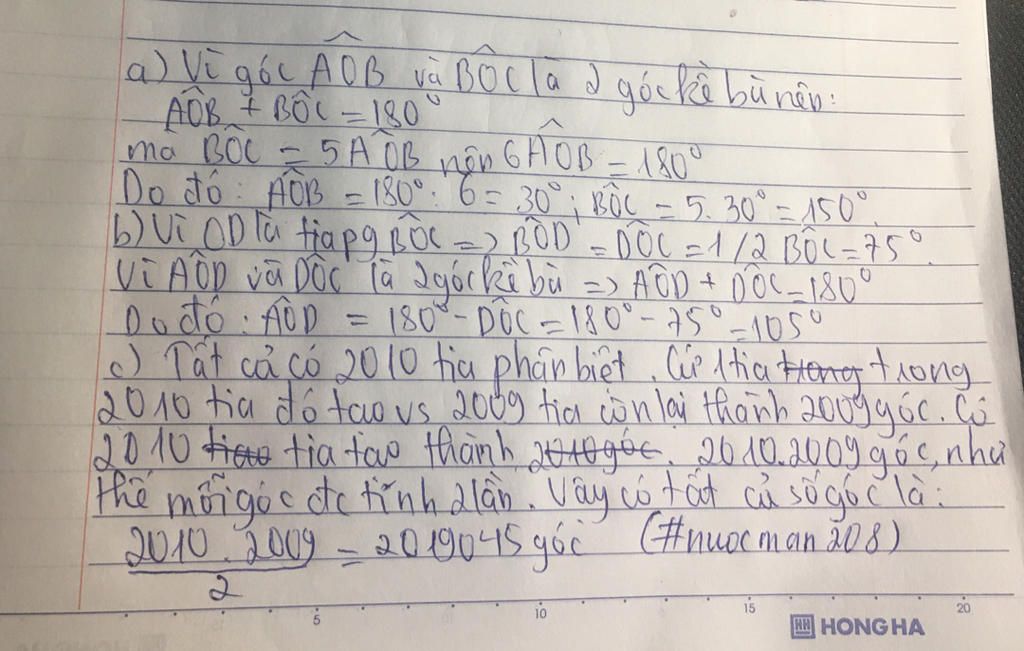 a) Vì góc AÔB và BÔC là 2 góc kề bù nên:
AÔB + BÔC = 180°
mà BÔC = 5AÔB nên 6AÔB = 180°
Do đó: AÔB = 180° : 6 = 30° ; BÔC = 5.30° = 150°.
b) Vì OD là tia pg BÔC => BÔD = DÔC = 1/2 BÔC = 75°.
Vì AÔD và DÔC là 2 góc kề bù => AÔD + DÔC = 180°
Do đó: AÔD = 180° - DÔC = 180° - 75° = 105°
c) Tất cả có 2010 tia phân biệt. Cứ 1 tia trong trong
2010 tia đó tao vs 2009 tia còn lại thành 2009 góc. Có
2010 tiao tia tao thành 2010 góc. 2010.2009 góc, như
thế mỗi góc đc tính 2 lần. Vậy có tất cả số góc là:
2010 . 2009 / 2 = 2019045 góc (#nuocman208)
5 10 15 20
HH HONG HA